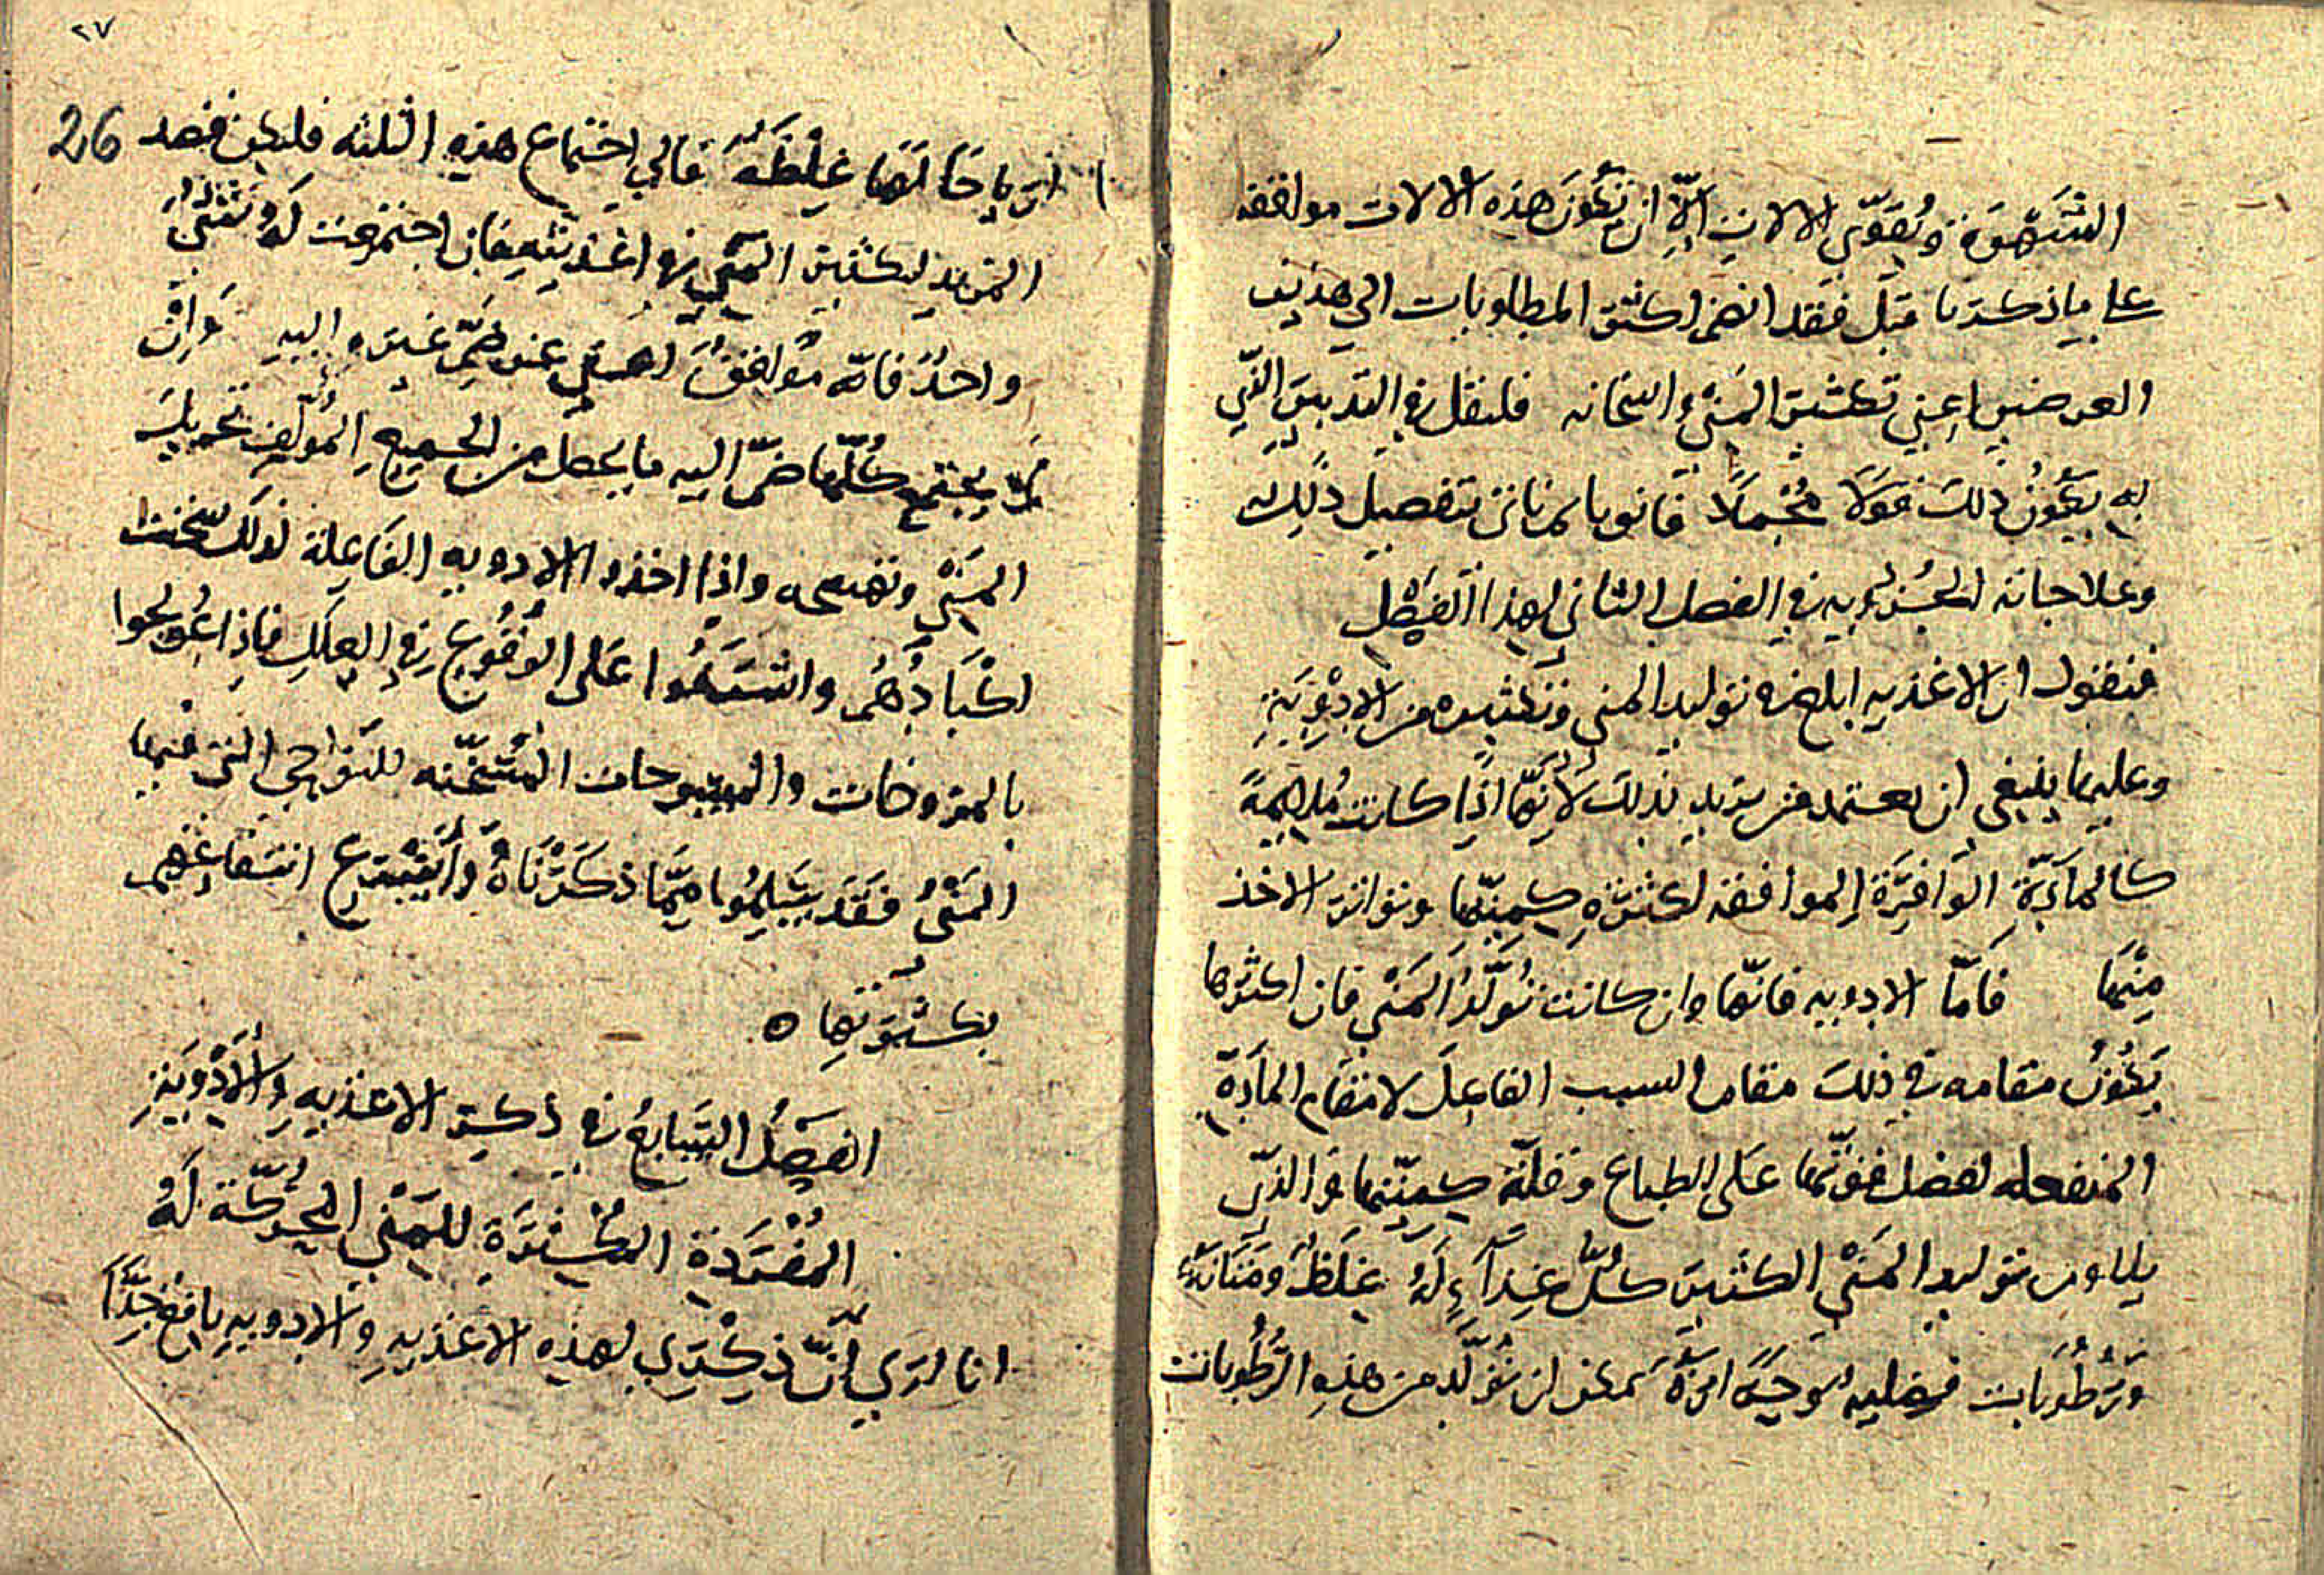 الشهوة ويقوي الالات الّا ان تكون هذه الالات موافقه
على ما ذكرنا قبل فقد انضم اكثر المطلوبات الى هذين
العرضين اعني تكثير المني واسخانه فلنقل في التدبير الذي
به يكون ذلك قولا مجملا قانونيا ثم ناتي بتفصيل ذلك
وعلاجاته الجزويه في الفصل الثاني لهذا الفصل
فنقول ان الاغذيه ابلغ في توليد المني وتكثيره من الادوية
وعليها ينبغي ان يعتمد من يريد ذلك لانّها اذا كانت ملايمة
كالمادّة الوافرة الموافقه لكثرة كميتها وتواتر الاخذ
منها فامّا الادويه فانّها وان كانت تولّد المني فان اكثرها
يكون مقامه في ذلك مقام السبب الفاعل لا مقام المادة
المنفعله لفضل قوتها على الطباع وقلّة كميّتها والذي
يلاوم توليد المني الكثير كلّ غذاء له غلظ ومتانة
ورطوبات فضليه لزجة يمكن ان تولّد من هذه الرطوبات
٢٧
26
ارياحا لها غلظة فالى اجتماع هذه الثلثه فليكن قصد
المريد لتكثير المني في اغذيته فان اجتمعت له في شي
واحد فانه موافق له مغني عن ضمّ غيره اليه وان
لم يجتمع كلّها ضمّ اليه ما يحصل من الجميع المولف تحريك
المني وتهييجه واذا اخذوا الادويه الفاعلة لذلك سخنت
اكبادهم واشتفوا على الوقوع في العلل فاذا عولجوا
بالمروخات والمسوحات المسخّنه للنواحي التي فيها
المني فقد يسلموا ممّا ذكرناه واسرع انتفاعهم
بكثرتها ه
الفصل السابع في ذكر الاغذيه والادوية
المفردة المكثرة للمني المحرّكة له
انا ارى انّ ذكري لهذه الاغذيه والادويه نافع جدّا